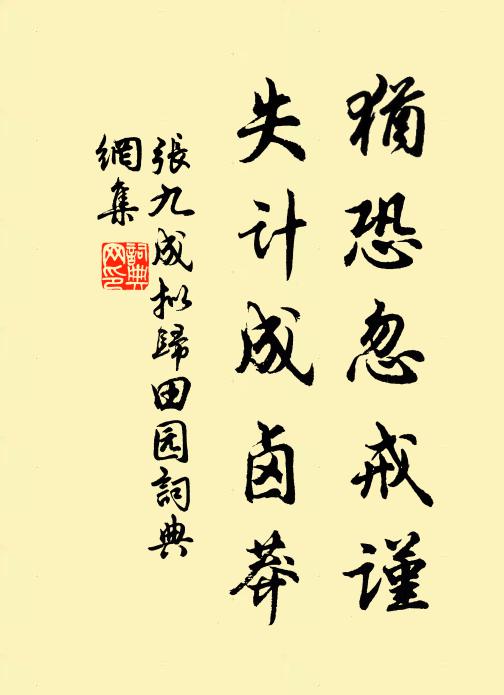 猶恐忽戒谨
失计成卤莽
張九成拟歸田园詞典
網集
詞典
网印